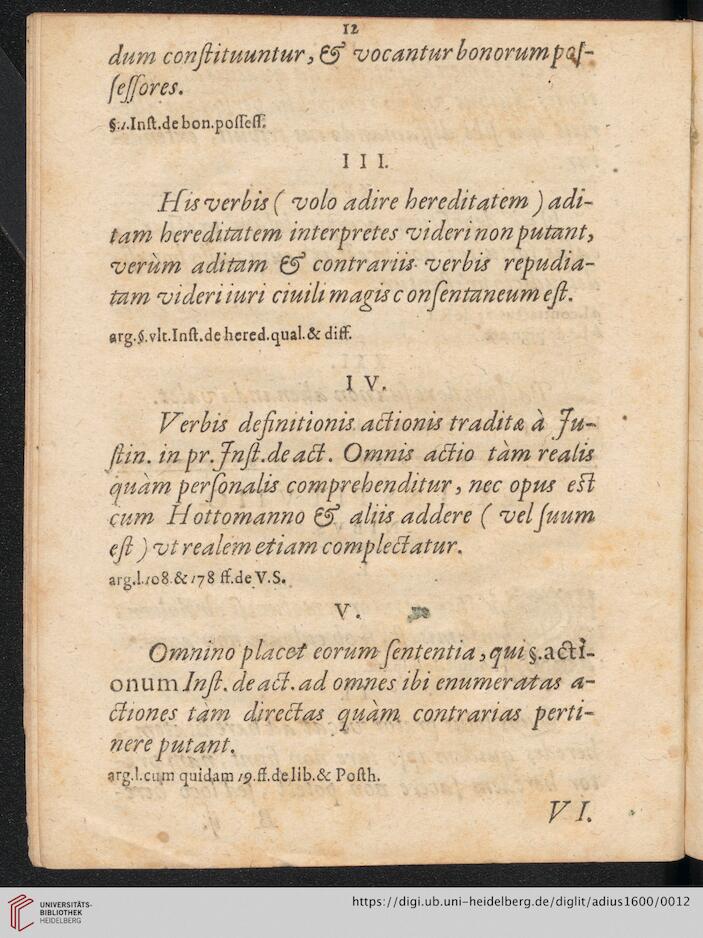 12
dum conſtituuntur, & vocantur bonorum poſ-
ſeſſores.
§.1.Inſt.de bon.poſſeſſ.
III.
His verbis ( volo adire hereditatem ) adi-
tam hereditatem interpretes videri non putant,
verùm aditam & contrariis verbis repudia-
tam videri iuri ciuili magis conſentaneum eſt.
arg.§.vlt.Inſt.de hered.qual.& diff.
IV.
Verbis definitionis actionis traditæ à Ju-
ſtin. in pr. Inſt.de act. Omnis actio tàm realis
quàm perſonalis comprehenditur, nec opus eſt
cum Hottomanno & aliis addere ( vel ſuum
eſt ) vt realem etiam complectatur.
arg.l.108.& 178 ff.de V.S.
V.
Omnino placet eorum ſententia, qui §.acti-
onum Inſt. de act. ad omnes ibi enumeratas a-
ctiones tàm directas quàm contrarias perti-
nere putant.
arg.l.cum quidam 19.ff.de lib.& Poſth.
VI.
UNIVERSITÄTS-
BIBLIOTHEK
HEIDELBERG
https://digi.ub.uni-heidelberg.de/diglit/adius1600/0012